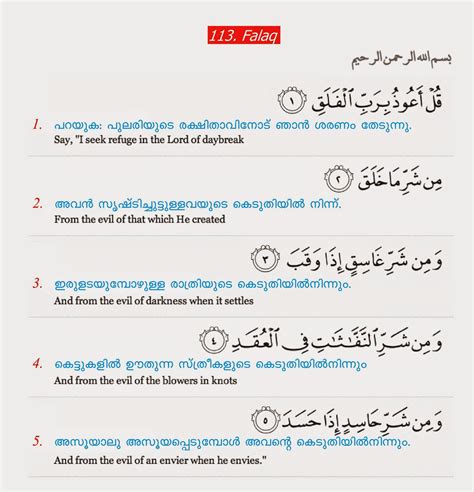 113. Falaq
بسم الله الرحمن الرحيم
قُلْ أَعُوذُ بِرَبِّ ٱلْفَلَقِ ١
1. പറയുക: പുലരിയുടെ രക്ഷിതാവിനോട് ഞാന്‍ ശരണം തേടുന്നു.
Say, "I seek refuge in the Lord of daybreak
مِن شَرِّ مَا خَلَقَ ٢
2. അവന്‍ സൃഷ്ടിച്ചുട്ടുള്ളവയുടെ കെടുതിയില്‍ നിന്ന്.
From the evil of that which He created
وَمِن شَرِّ غَاسِقٍ إِذَا وَقَبَ ٣
3. ഇരുളടയുമ്പോഴുള്ള രാത്രിയുടെ കെടുതിയില്‍നിന്നും.
And from the evil of darkness when it settles
وَمِن شَرِّ ٱلنَّفَّـٰثَـٰتِ فِى ٱلْعُقَدِ ٤
4. കെട്ടുകളില്‍ ഊതുന്ന സ്ത്രീകളുടെ കെടുതിയില്‍നിന്നും
And from the evil of the blowers in knots
وَمِن شَرِّ حَاسِدٍ إِذَا حَسَدَ ٥
5. അസൂയാലു അസൂയപ്പെടുമ്പോള്‍ അവന്റെ കെടുതിയില്‍നിന്നും.
And from the evil of an envier when he envies."